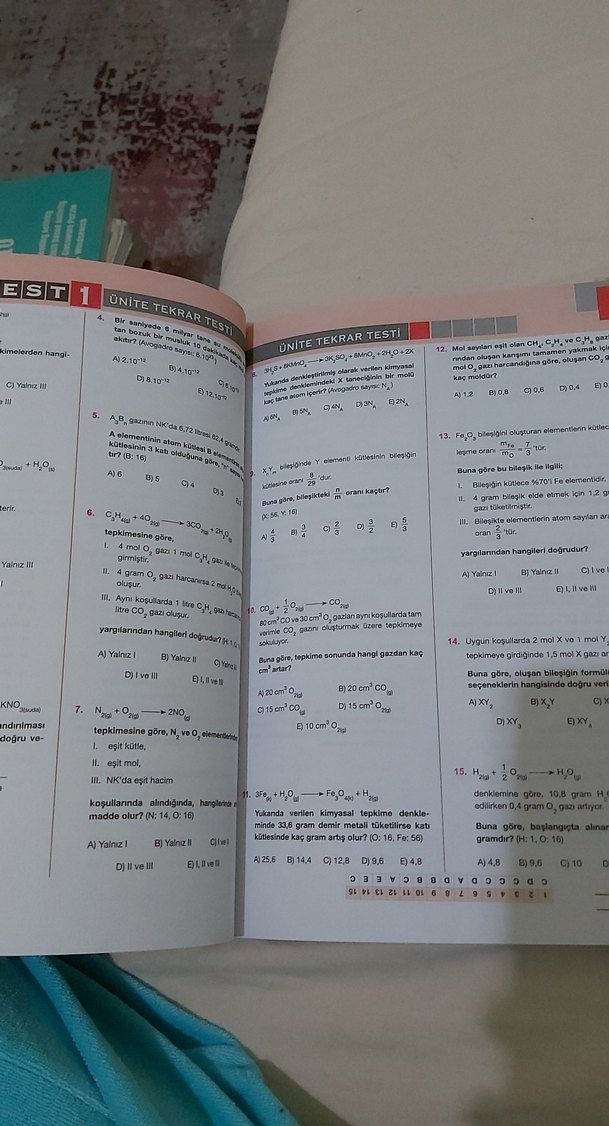 EST 1 ÜNİTE TEKRAR TESTİ
kimelerden hangi-
C) Yalnız III
e III
O3(suda) + H2O(s)
terir.
Yalnız III
KNO3(suda)
andırılması
doğru ve-
4. Bir saniyede 6 milyar tane su
tan bozuk bir musluk 10 dakikada
akıtır? (Avogadro sayısı: 6.10²³)
A) 2.10⁻¹² B) 4.10⁻¹²
D) 8.10⁻¹² E) 12.10⁻¹²
5. A3Bn gazının NK'da 6,72 litresi 62,4 gramdır.
A elementinin atom kütlesi B elementinin
kütlesinin 3 katı olduğuna göre, "n"
tır? (B: 16)
A) 6 B) 5 C) 4 D) 3
6. C3H4(g) + 4O2(g) → 3CO2(g) + 2H2O
tepkimesine göre,
I. 4 mol O2 gazı 1 mol C3H4 gazı ile
girmiştir.
II. 4 gram O2 gazı harcanırsa 2 mol H2O
oluşur.
III. Aynı koşullarda 1 litre C3H4 gazı
litre CO2 gazı oluşur.
yargılarından hangileri doğrudur?
A) Yalnız I B) Yalnız II C) Yalnız III
D) I ve III E) I, II ve III
7. N2(g) + O2(g) → 2NO(g)
tepkimesine göre, N2 ve O2 elementlerinden
I. eşit kütle,
II. eşit mol,
III. NK'da eşit hacim
koşullarında alındığında, hangilerinde
madde olur? (N: 14, O: 16)
A) Yalnız I B) Yalnız II C) I ve II
D) II ve III E) I, II ve III
ÜNİTE TEKRAR TESTİ
8. 3H2S + 8KMnO4 → 3K2SO4 + 8MnO2 + 2H2O + 2X
Yukarıda denkleştirilmiş olarak verilen kimyasal
tepkime denklemindeki X taneciğinin bir molü
kaç tane atom içerir? (Avogadro sayısı: NA)
A) 6NA B) 5NA C) 4NA D) 3NA E) 2NA
9. XnYm bileşiğinde Y elementi kütlesinin bileşiğin
kütlesine oranı 8/29 'dur.
Buna göre, bileşikteki n/m oranı kaçtır?
(X: 56, Y: 16)
A) 4/3 B) 3/4 C) 2/3 D) 3/2 E) 5/3
10. CO(g) + 1/2 O2(g) → CO2(g)
80 cm³ CO ve 30 cm³ O2 gazları aynı koşullarda tam
verimle CO2 gazını oluşturmak üzere tepkimeye
sokuluyor.
Buna göre, tepkime sonunda hangi gazdan kaç
cm³ artar?
A) 20 cm³ O2(g) B) 20 cm³ CO(g)
C) 15 cm³ CO(g) D) 15 cm³ O2(g)
E) 10 cm³ O2(g)
11. 3Fe(k) + H2O(g) → Fe3O4(k) + H2(g)
Yukarıda verilen kimyasal tepkime denkle-
minde 33,6 gram demir metali tüketilirse katı
kütlesinde kaç gram artış olur? (O: 16, Fe: 56)
A) 25,6 B) 14,4 C) 12,8 D) 9,6 E) 4,8
1 2 3 4 5 6 7 8 9 10 11 12 13 14 15
C D C C C D A D B B C A E E C
12. Mol sayıları eşit olan CH4, C2H4 ve C3H8
rından oluşan karışımı tamamen yakmak
mol O2 gazı harcandığına göre, oluşan CO2
kaç moldür?
A) 1,2 B) 0,8 C) 0,6 D) 0,4
13. Fe2O3 bileşiğini oluşturan elementlerin kütlece
leşme oranı mFe/mO = 7/3 'tür.
Buna göre bu bileşik ile ilgili;
I. Bileşiğin kütlece %70'i Fe elementidir.
II. 4 gram bileşik elde etmek için 1,2
gazı tüketilmiştir.
III. Bileşikte elementlerin atom sayıları
oran 2/3 'tür.
yargılarından hangileri doğrudur?
A) Yalnız I B) Yalnız II
D) II ve III E) I, II ve III
14. Uygun koşullarda 2 mol X ve 1 mol Y2
tepkimeye girdiğinde 1,5 mol X gazı
Buna göre, oluşan bileşiğin formülü
seçeneklerin hangisinde doğru
A) XY2 B) X2Y
D) XY3 E) XY4
15. H2(g) + 1/2 O2(g) → H2O(g)
denklemine göre, 10,8 gram
edilirken 0,4 gram O2 gazı artıyor.
Buna göre, başlangıçta alınan
gramdır? (H: 1, O: 16)
A) 4,8 B) 9,6 C) 10